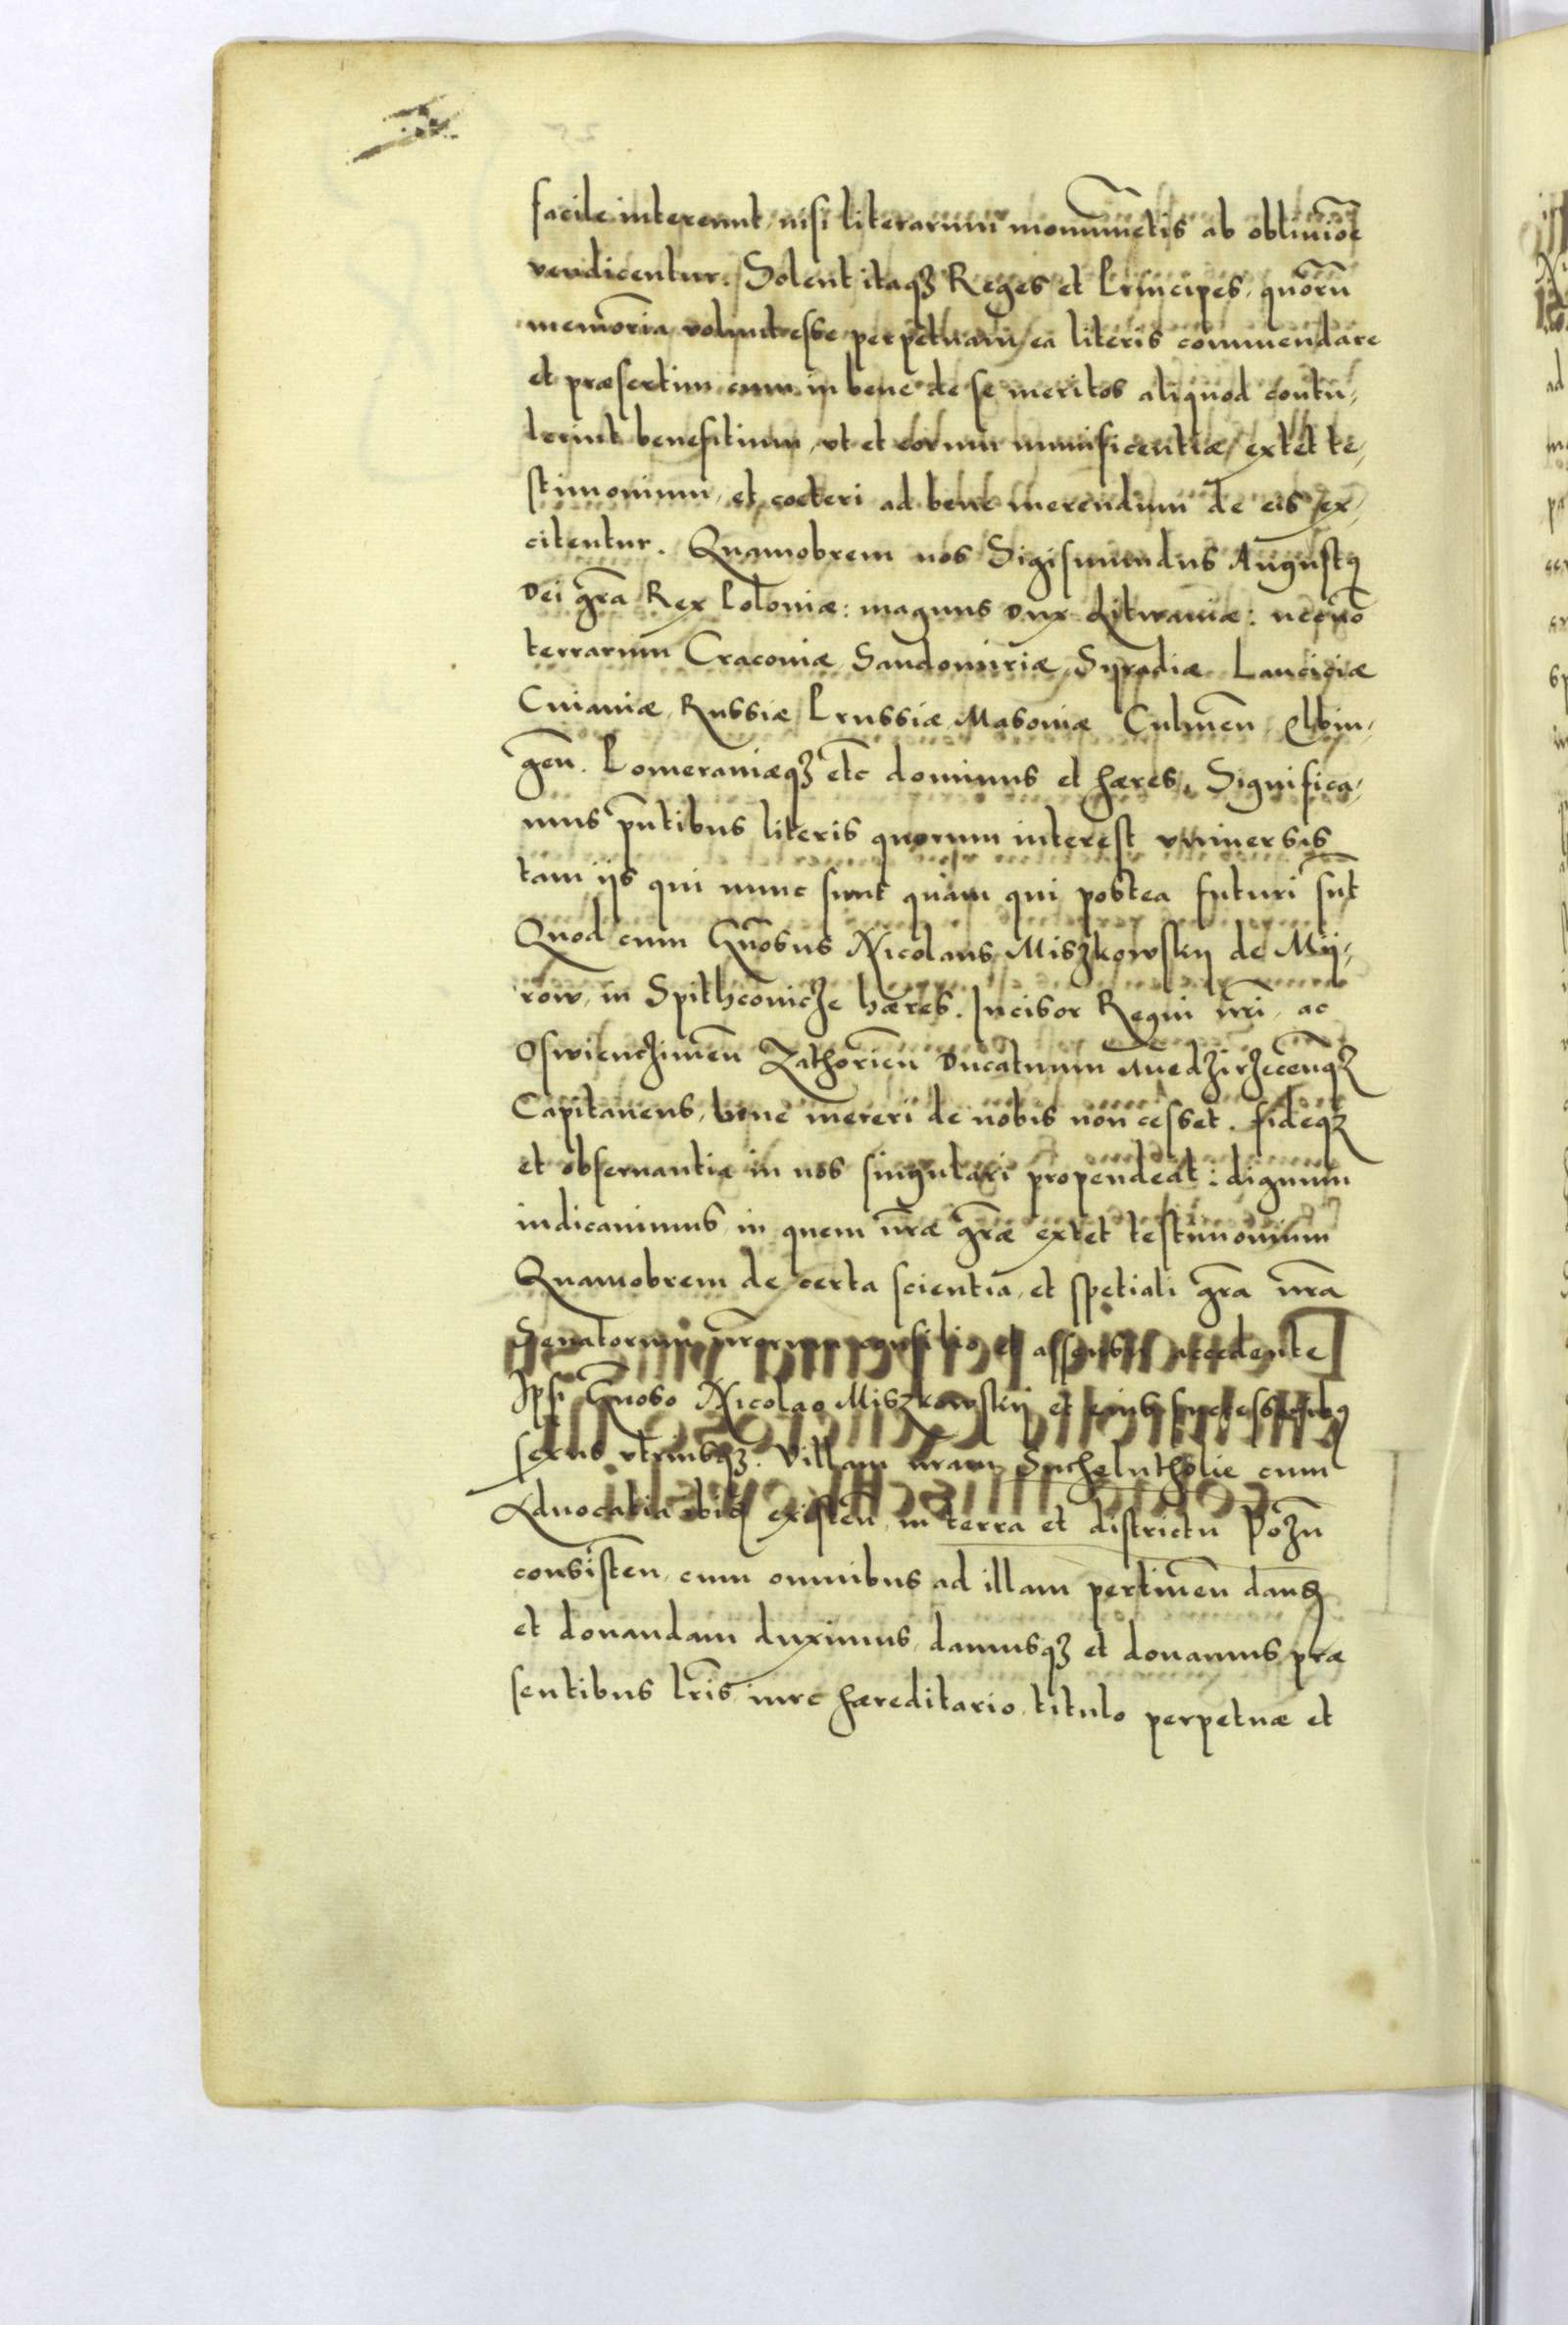 facile intereunt, nisi literarum monumẽtis ab obliuiõe
vendicentur. Solent itaqꝫ Reges et Principes, quorũ
memoriã volunt esse perpetuam, ea literis commendare
et præsertim cum in bene de se meritos aliquod contu,
lerint benefitium, vt et eorum munificentiæ extet te,
stimonium, et coeteri ad bene merendum de eis ex,
citentur. Quamobrem nos Sigismundus Augustꝰ
Dei grã Rex Poloniæ: magnus Dux Litwaniæ: necnõ
terrarum Cracouiæ Sandomiriæ Syradiæ Lanciciæ
Cuiauiæ, Russiæ Prussiæ Masouiæ Culmeñ, Elbin,
geñ. Pomeraniæqꝫ etc dominus et hæres, Significa,
mus pñtibus literis quorum interest vniuersis
tam ijs qui nunc sunt quam qui postea futuri sũt
Quod cum Gñosus Nicolaus Miszkowskij de Mij,
row, in Spithcowicze hæres. Incisor Regni nrĩ, ac
Oswienczimeñ Zathorieñ Ducatuum
Capitaneus, bene mereri de nobis non cesset. fideqꝫ
et obseruantia in nos singulari propendeat: dignum
iudicauimus, in quem nrãe grãe extet testimonium
Quamobrem de certa scientia, et spetiali grã nrã
Senatorum nrõrum consilio et assensu accedente
Ipsi Gñoso Nicolao Miszkowskij et eius successoribꝰ
sexus vtriusqꝫ. Villam nrãm cum
Aduocatia ibiđ existeñ, in terra et districtu Pozñ
consisteñ, cum omnibus ad illam pertineñ danđ
et donandam duximus, damusqꝫ et donamus præ
sentibus lrĩs iure hæreditario, titulo perpetuæ et